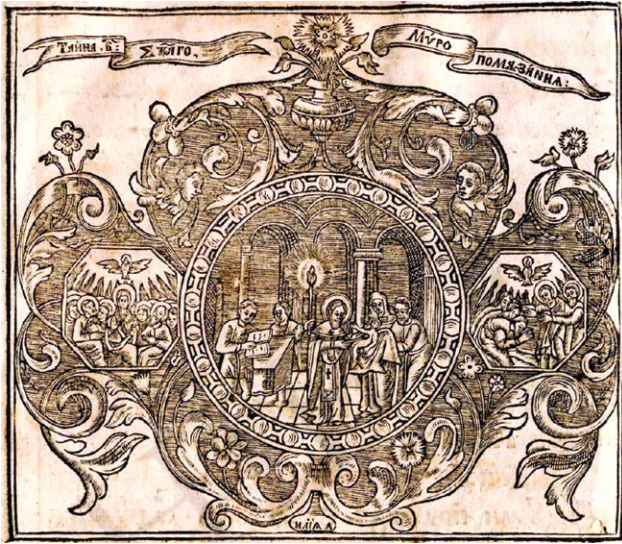 ТАЙНА, В҃: СТ҃АГО,
МѴРО
ПОМАЗАННА:
ИЛІѦ А